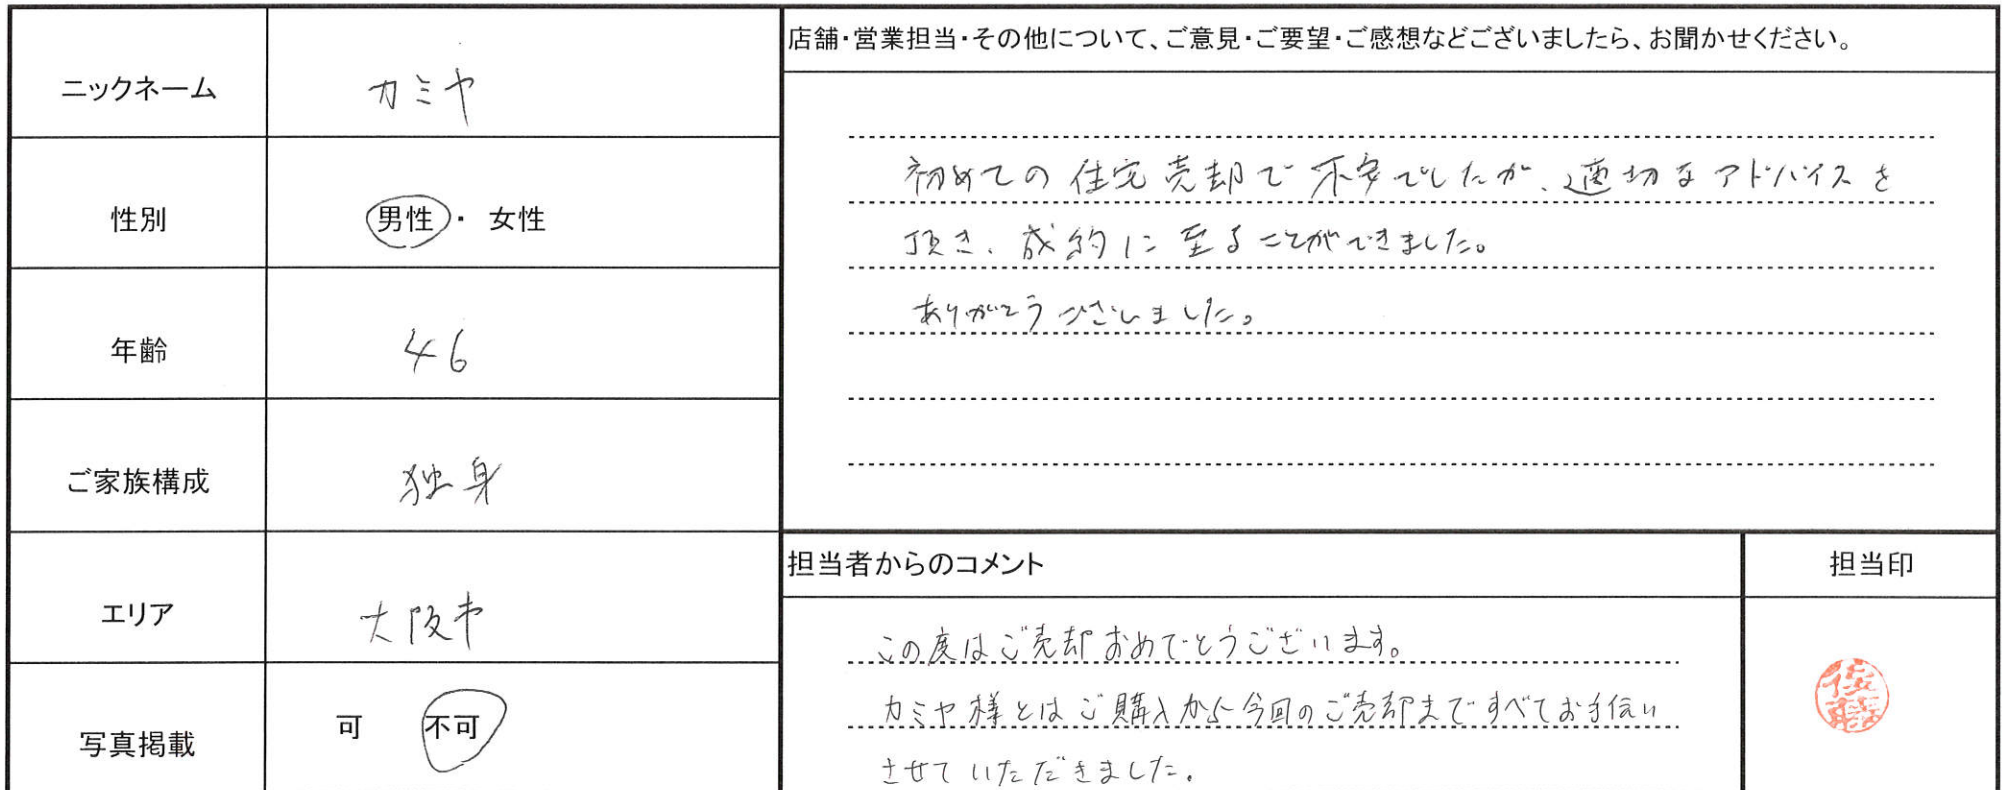 ニックネーム
カミヤ
性別
男性・女性
年齢
46
ご家族構成
独身
エリア
大阪市
写真掲載
可 不可
店舗・営業担当・その他について、ご意見・ご要望・ご感想などございましたら、お聞かせください。
初めての住宅売却で不安でしたが、適切なアドバイスを
頂き、成約に至ることができました。
ありがとうございました。
担当者からのコメント
この度はご売却おめでとうございます。
カミヤ様とはご購入から今回のご売却まですべてお手伝い
させていただきました。
担当印
佐藤